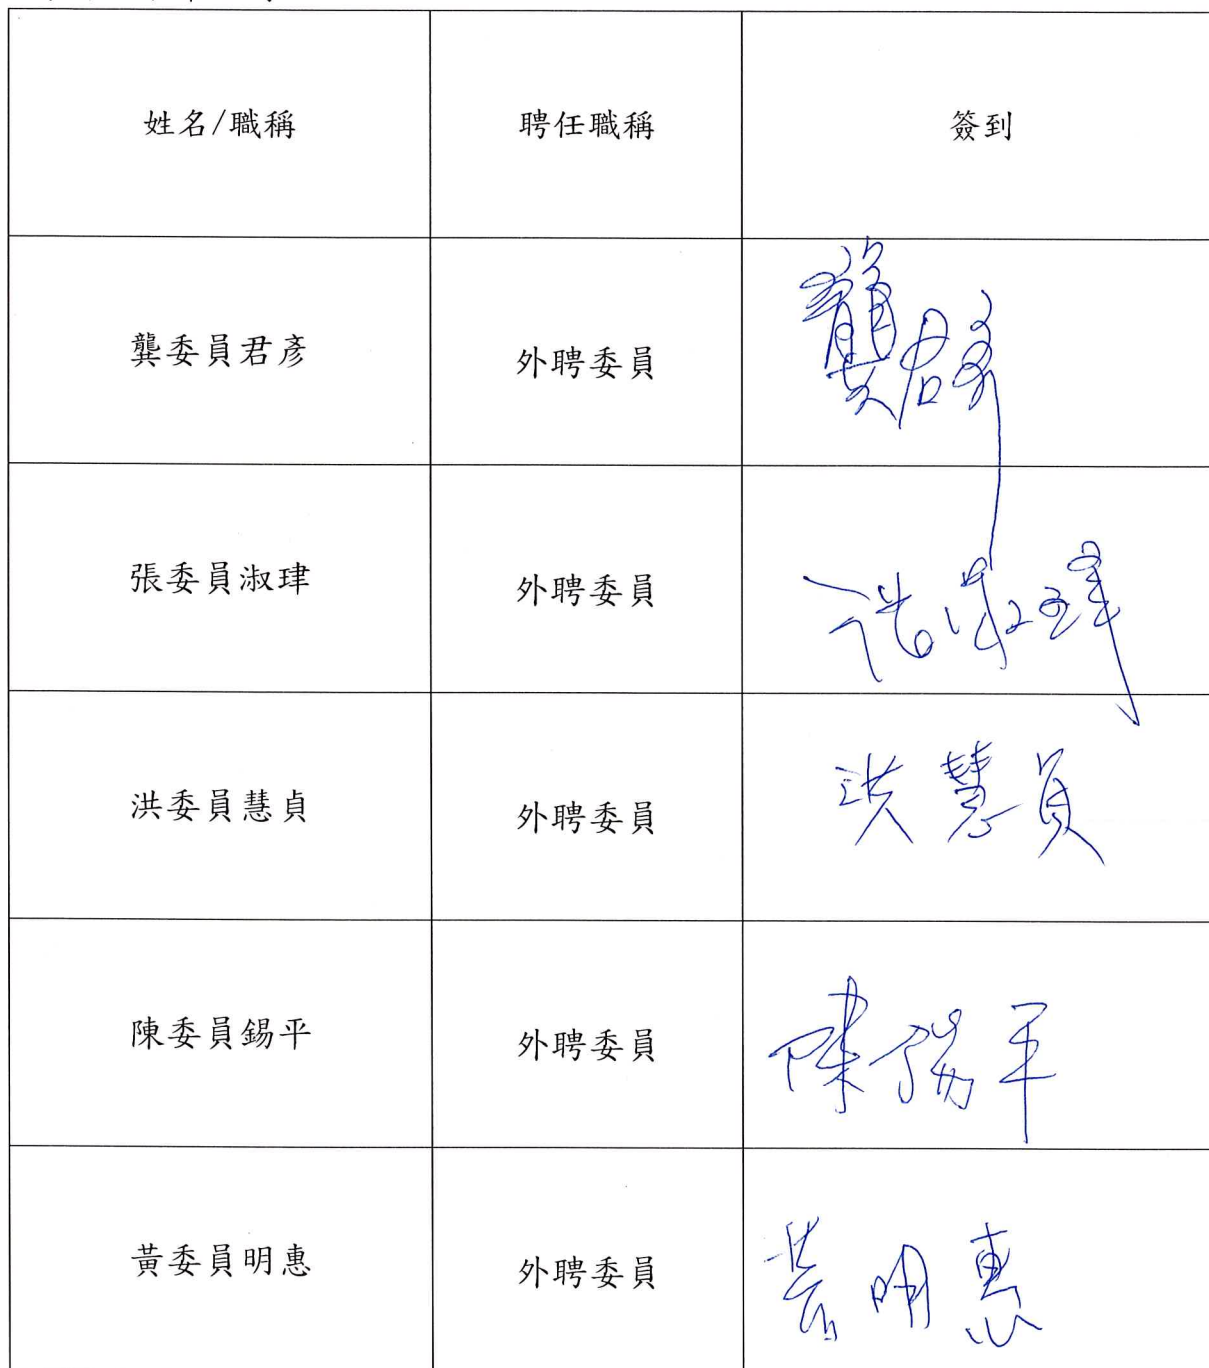 姓名/職稱 聘任職稱 簽到
龔委員君彥 外聘委員 龔君彥
張委員淑珒 外聘委員 張淑珒
洪委員慧貞 外聘委員 洪慧貞
陳委員錫平 外聘委員 陳錫平
黃委員明惠 外聘委員 黃明惠